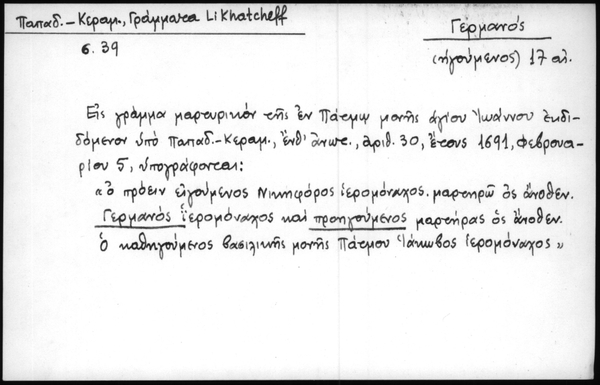 Παπαδ.–Κεραμ., Γράμματα Likhatcheff
σ. 39
Γερμανός
(ηγούμενος) 17 αι.
Εἰς γράμμα μαρτυρικόν τῆς ἐν Πάτμῳ μονῆς ἁγίου Ἰωάννου ἐκδι-
δόμενον ὑπό Παπαδ.–Κεραμ., ἔνθ' ἄνωτ., ἀριθ. 30, ἔτους 1691, Φεβρουα-
ρίου 5, ὑπογράφονται:
«ὁ πρόειν εἰγούμενος Νικηφόρος ἱερομόναχος. μαρτηρῶ ὁς ἄνοθεν.
Γερμανός ἱερομόναχος καί προηγούμενος μαρτήρας ὁς ἄνοθεν.
ὁ καθηγούμενος βασιλικῆς μονῆς Πάτμου Ἰάκωβος ἱερομόναχος»